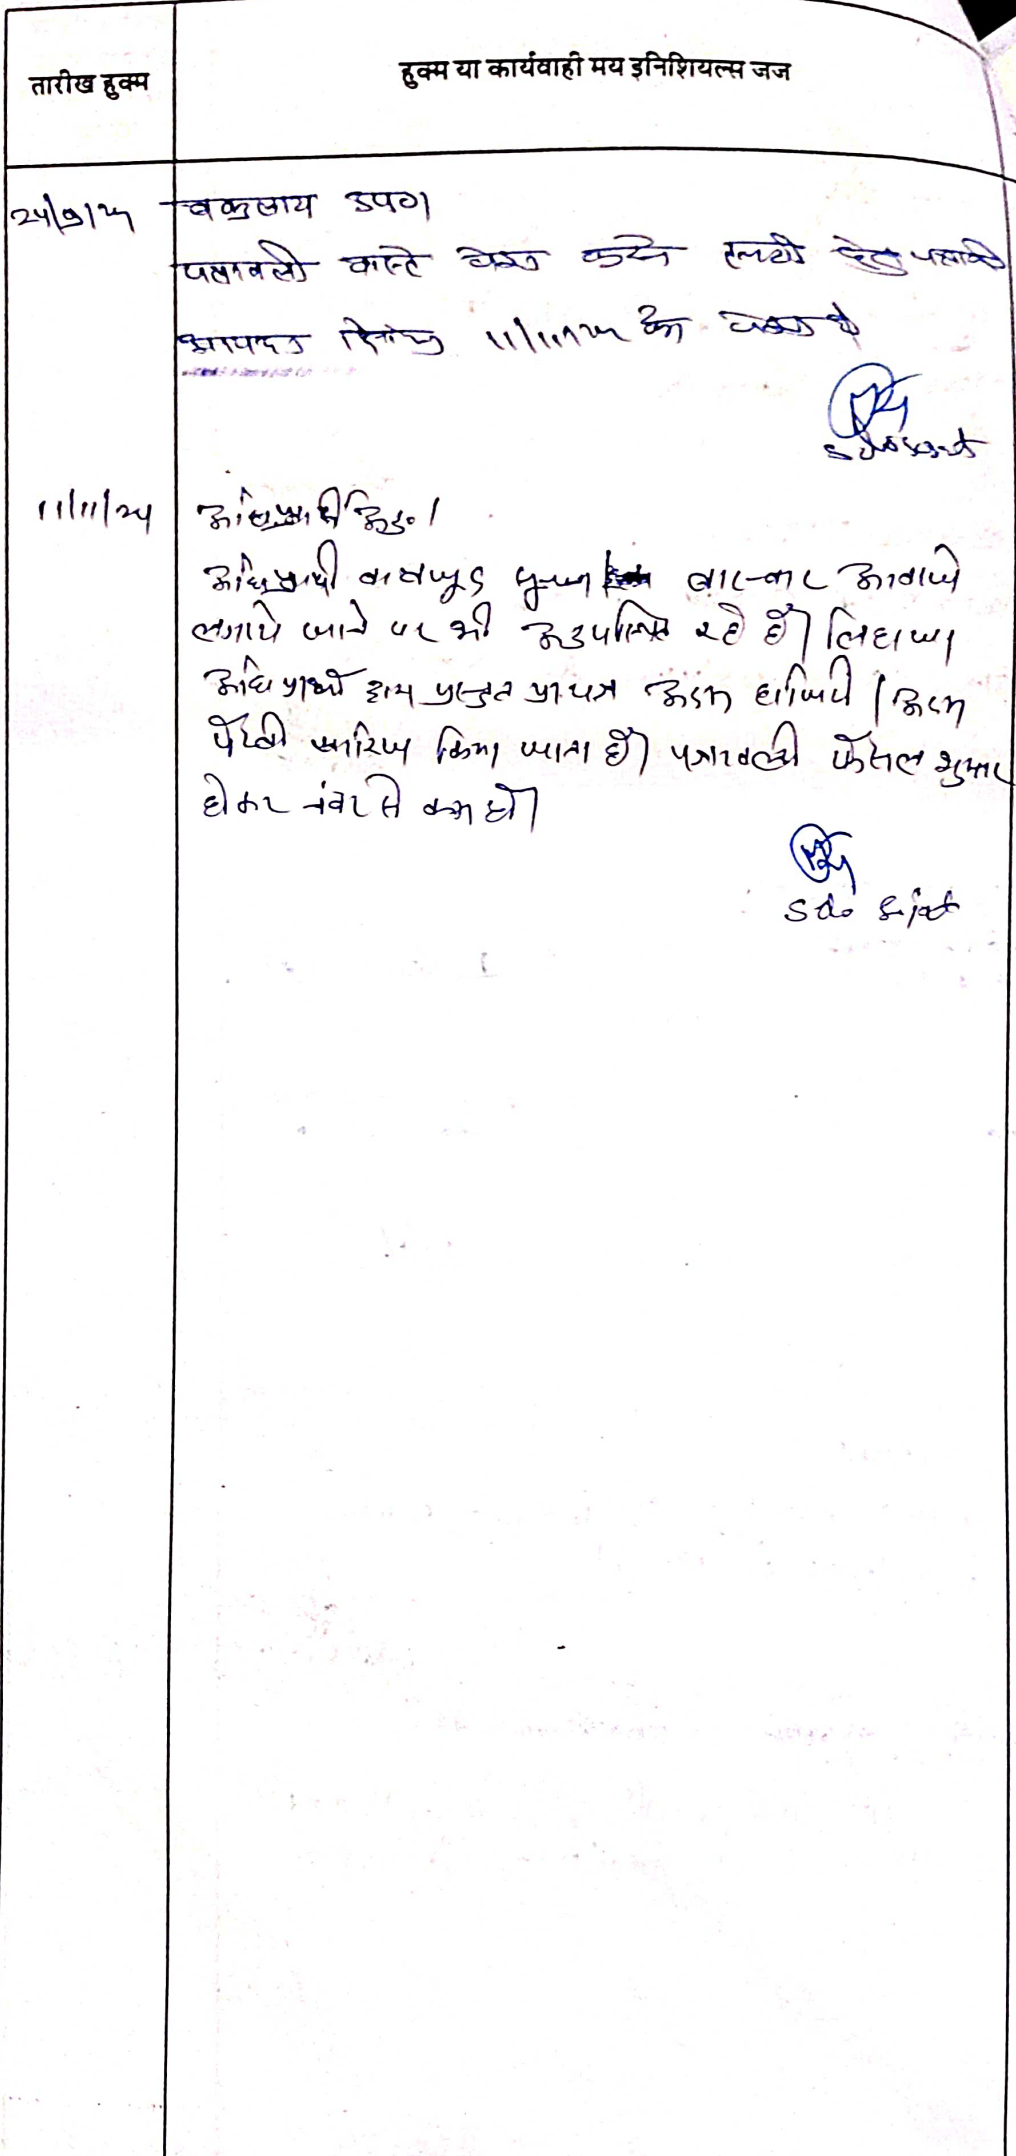 तारीख हुक्म
हुक्म या कार्यवाही मय इनिशियल्स जज
वकुलाय उप०।
पत्रावली वास्ते पेश करने तलबी हेतु पत्रावली
आयन्दा दिनांक 11/11/24 को पेश हो
11/11/24
अधिप्रार्थी अउ०।
अधिप्रार्थी बावजूद सूचना बार-बार आवाजे
लगाये जाने पर भी अनुपस्थित रहे हैं। लिहाजा
अधिप्रार्थी द्वारा प्रस्तुत प्रा पत्र अदम हाजिरी / अदम
पैरवी खारिज किया जाता है। पत्रावली फैसल शुमार
होकर नंबर से कम हो।
Sdo Sojat